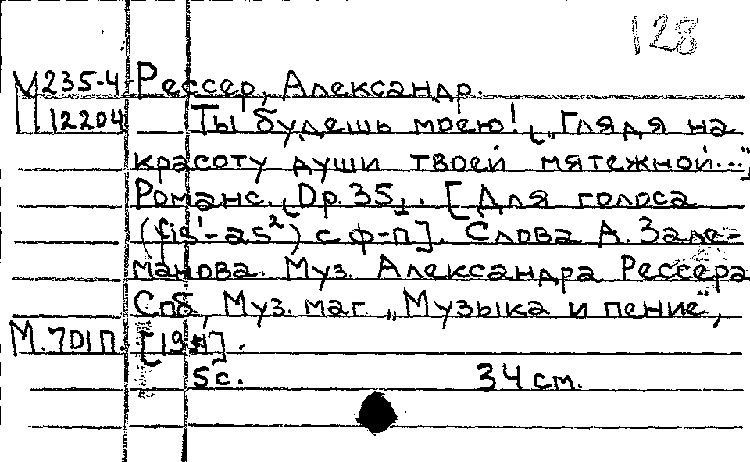 128
М 235-4 Рессер, Александр.
П 12204 Ты будешь моею! [„Глядя на
красоту души твоей мятежной..."]
Романс. [Op. 35]. [Для голоса
(fis¹-as²) с ф-п]. Слова А. Зале=
манова. Муз. Александра Рессера
Спб, Муз. маг „Музыка и пение",
М. 701 П.
5с. 34 см.